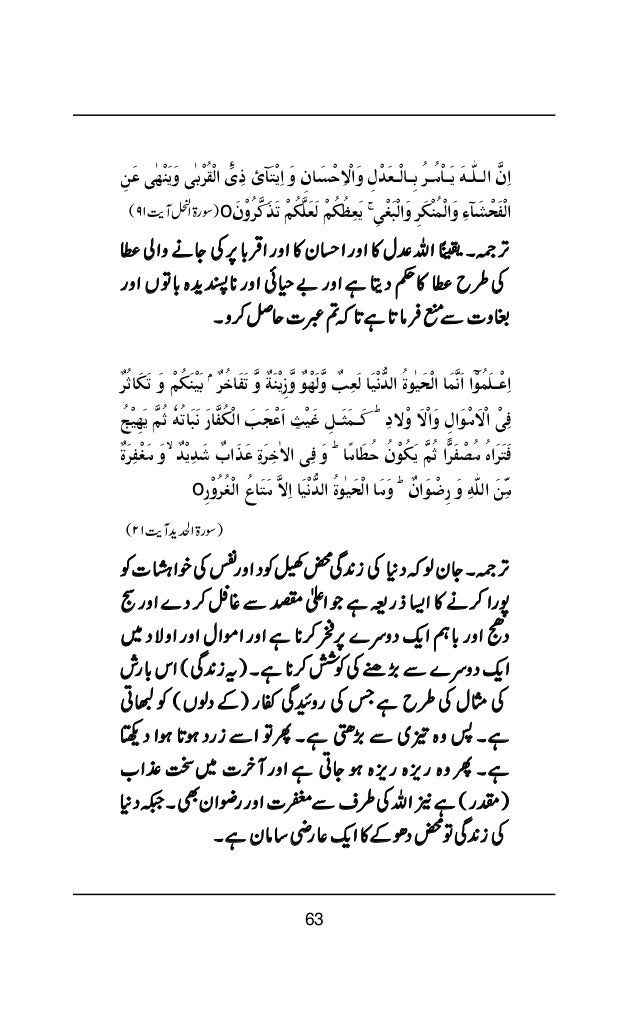 اِنَّ الـلّٰـهَ يَـاْمُـرُ بِـالْـعَـدْلِ وَالْاِحْسَانِ وَ اِيْتَآئِ ذِى الْقُرْبٰى وَيَنْهٰى عَنِ
الْفَحْشَآءِ وَالْمُنْكَرِ وَالْبَغْيِ ۚ يَعِظُكُمْ لَعَلَّكُمْ تَذَكَّرُوْنَO (سورۃ النحل آیت ۹۱)
ترجمہ۔ یقیناً اللہ عدل کا اور احسان کا اور اقربا پر کی جانے والی عطا
کی طرح عطا کا حکم دیتا ہے اور بے حیائی اور ناپسندیدہ باتوں اور
بغاوت سے منع فرماتا ہے تا کہ تم عبرت حاصل کرو۔
اِعْـلَمُوْٓا اَنَّمَا الْحَيٰوةُ الدُّنْيَا لَعِبٌ وَّلَهْوٌ وَّزِيْنَةٌ وَّ تَفَاخُرٌ ۢ بَيْنَكُمْ وَ تَكَاثُرٌ
فِى الْاَمْوَالِ وَ الْاَوْلَادِ ؕ كَـمَـثَـلِ غَيْثٍ اَعْجَبَ الْكُفَّارَ نَبَاتُهٗ ثُمَّ يَهِيْجُ
فَتَرَاهُ مُصْفَرًّا ثُمَّ يَكُوْنُ حُطَامًا ؕ وَ فِى الْاٰخِرَةِ عَذَابٌ شَدِيْدٌ ۙ وَ مَغْفِرَةٌ
مِّنَ اللّٰهِ وَ رِضْوَانٌ ؕ وَمَا الْحَيٰوةُ الدُّنْيَا اِلَّا مَتَاعُ الْغُرُوْرِO
(سورۃ الحدید آیت ۲۱)
ترجمہ۔ جان لو کہ دنیا کی زندگی محض کھیل کود اور نفس کی خواہشات کو
پورا کرنے کا ایسا ذریعہ ہے جو اعلیٰ مقصد سے غافل کر دے اور سج
دھج اور باہم ایک دوسرے پر فخر کرنا ہے اور اموال اور اولاد میں
ایک دوسرے سے بڑھنے کی کوشش کرنا ہے۔ (یہ زندگی) اس بارش
کی مثال کی طرح ہے جس کی روئیدگی کفار (کے دلوں) کو لبھاتی
ہے۔ پس وہ تیزی سے بڑھتی ہے۔ پھر تو اسے زرد ہوتا ہوا دیکھتا
ہے۔ پھر وہ ریزہ ریزہ ہو جاتی ہے اور آخرت میں سخت عذاب
(مقدر) ہے نیز اللہ کی طرف سے مغفرت اور رضوان بھی۔ جبکہ دنیا
کی زندگی تو محض دھوکے کا ایک عارضی سامان ہے۔
63